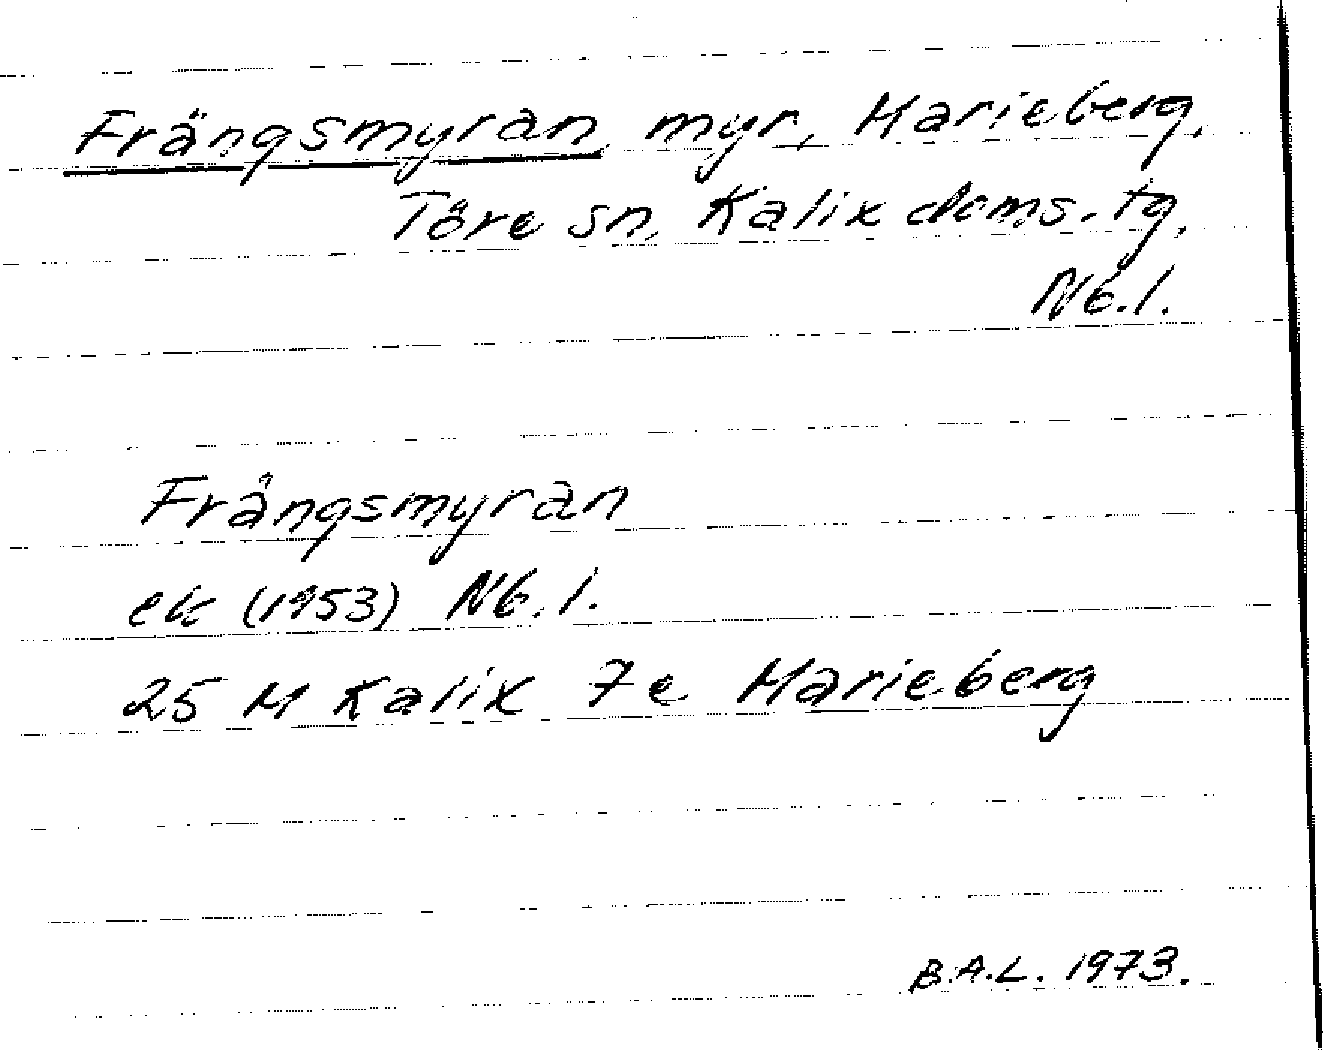 Frängsmyran, myr, Marieberg,
Töre sn, Kalix doms. tg,
Nb.l.
Frängsmyran
ek (1953) Nb.l.
25 M Kalix 7e Marieberg
B.A.L. 1973.